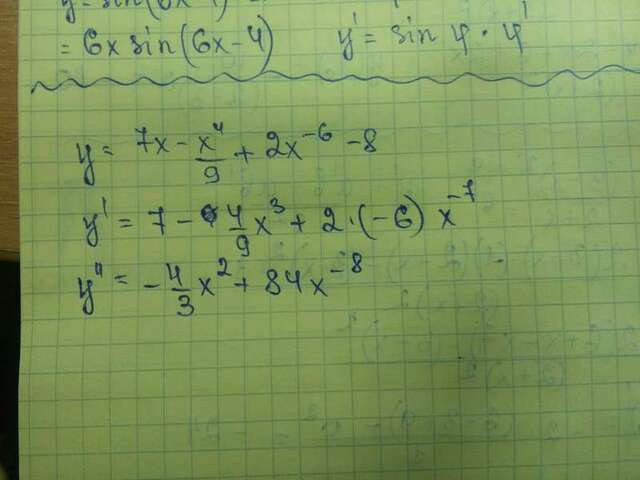 y = sin(6x
= 6x sin(6x-4) y' = sin φ · φ'
y = 7x - x⁴/9 + 2x⁻⁶ - 8
y' = 7 - 4/9 x³ + 2·(-6) x⁻⁷
y'' = - 4/3 x² + 84x⁻⁸